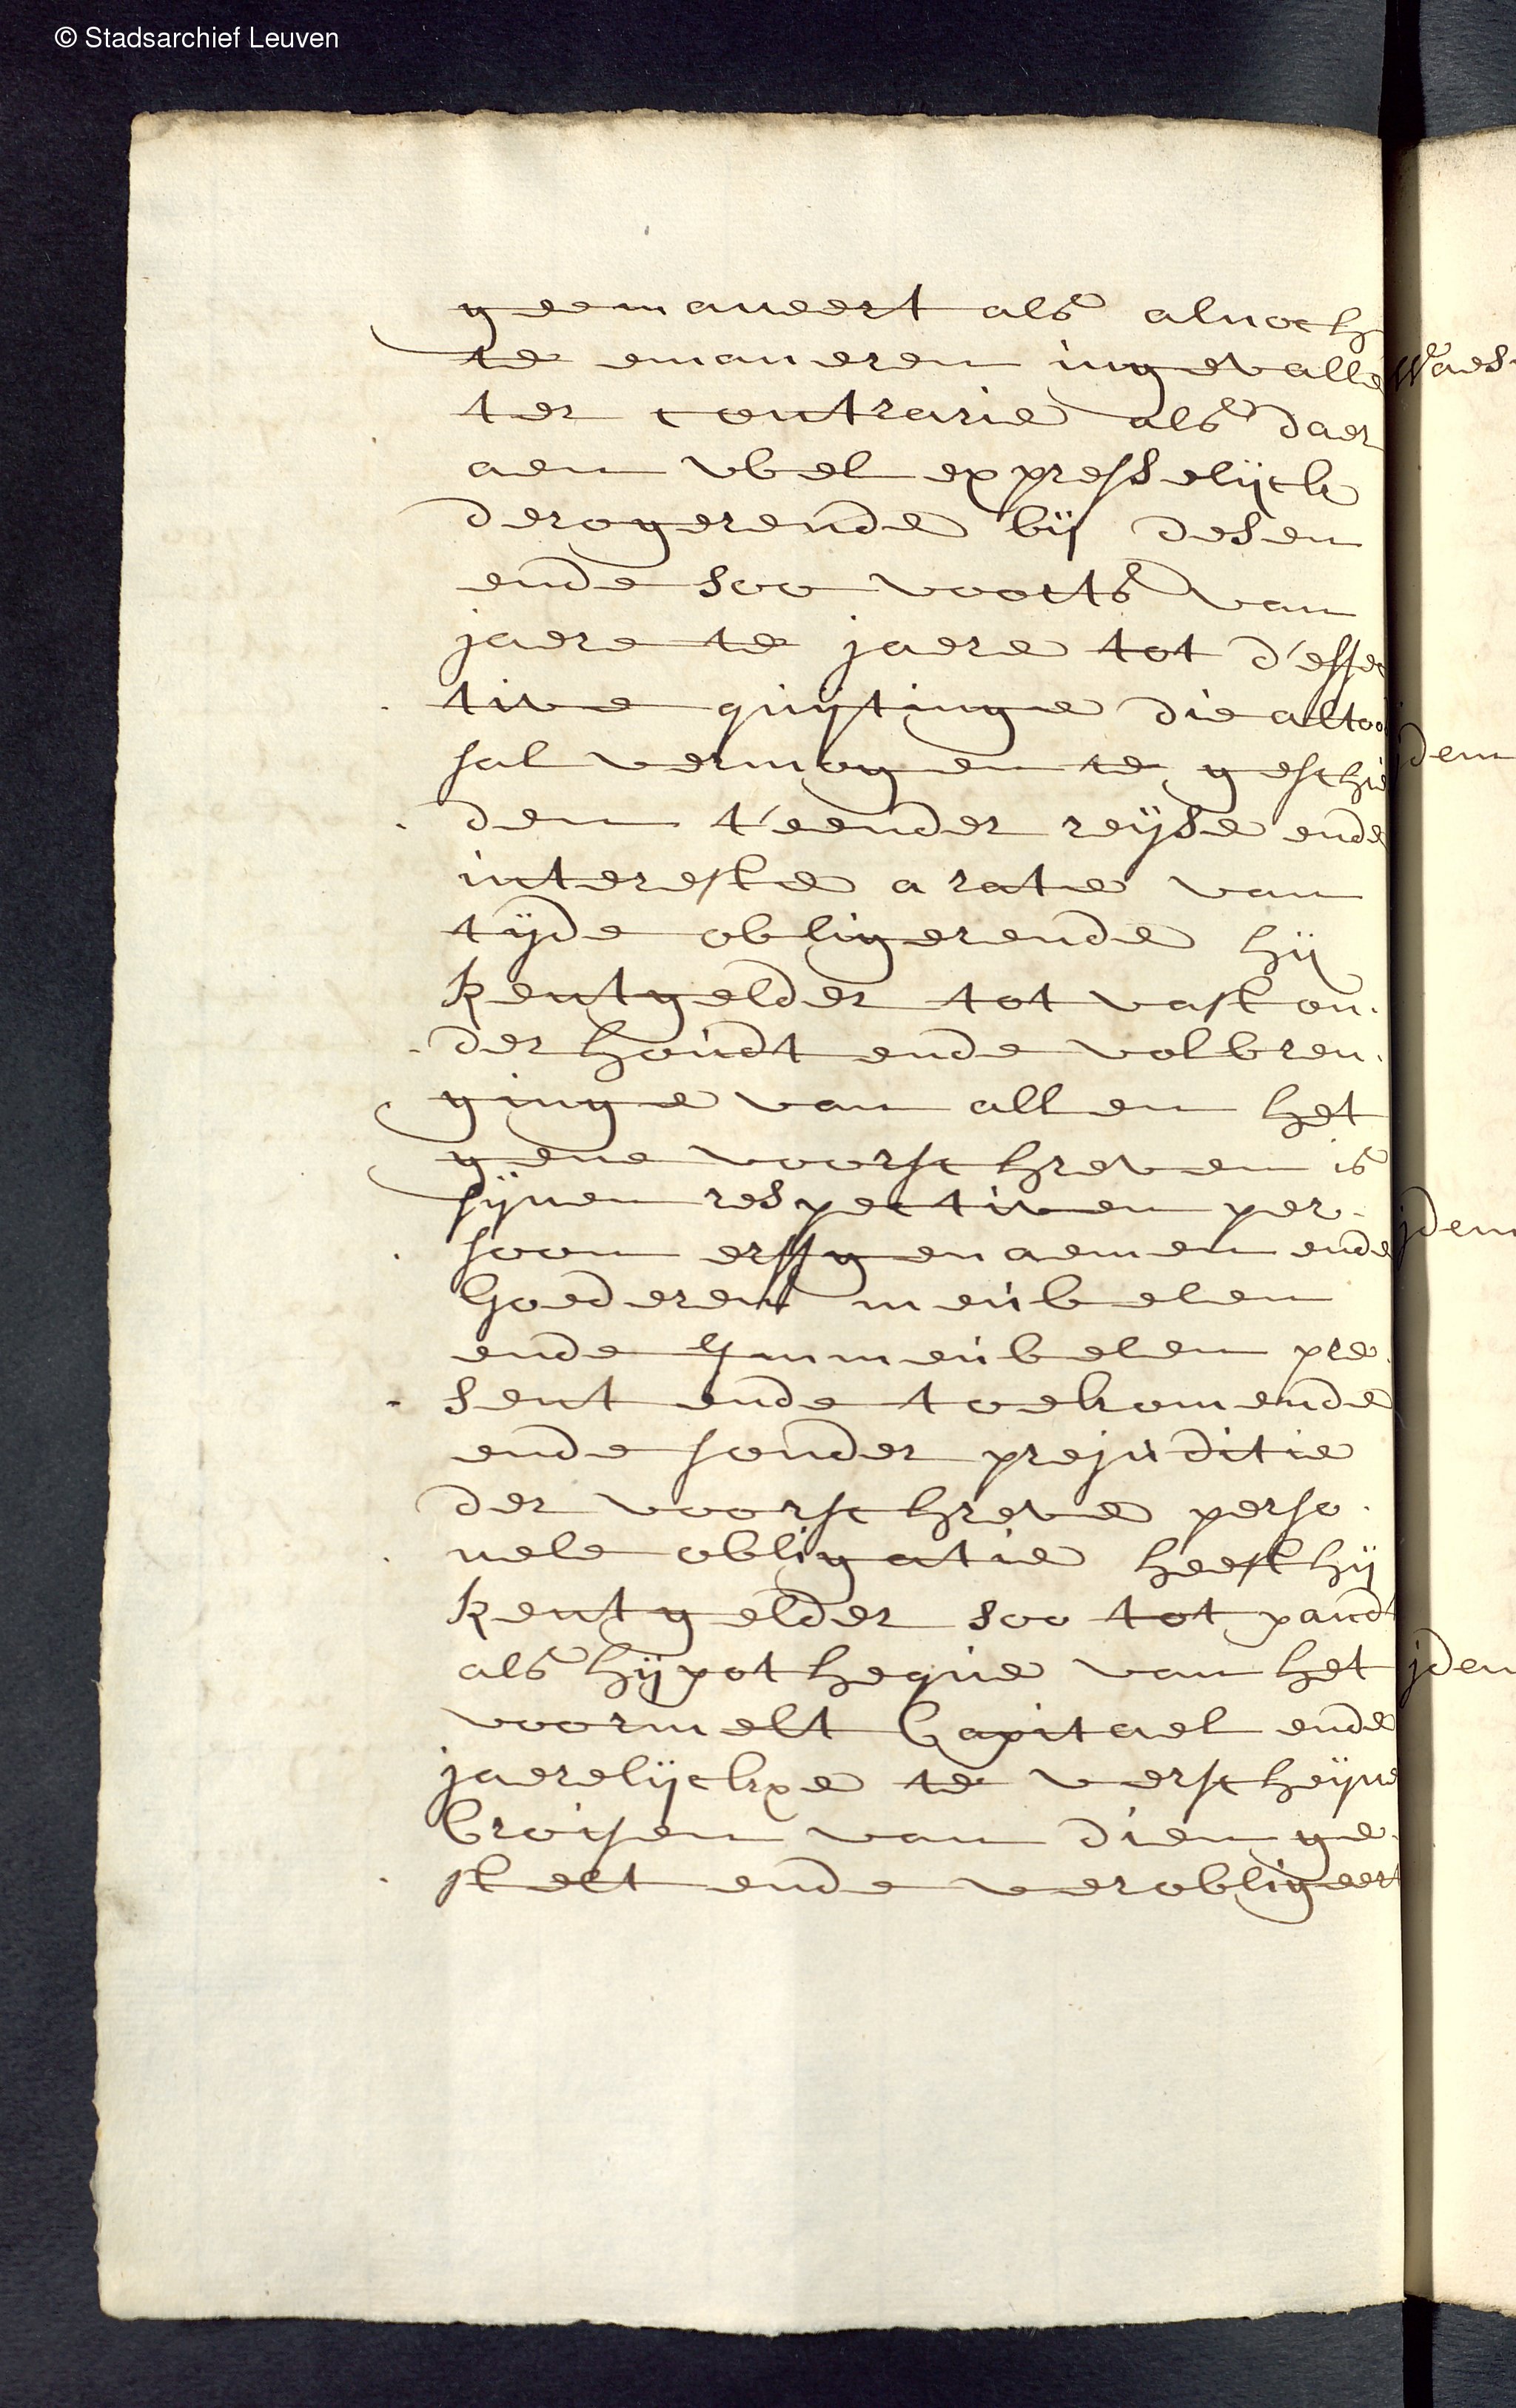 © Stadsarchief Leuven
geemaneert als alnoch
te emaneren ingevalle
ter contrarie als daer
aen wel expresselijck
derogerende bij desen
ende soo voorts van
jaere te jaere tot d'effec
tive quijtinge die altoo
sal vermogen te geschie
den t'eender reijse ende
intereste a rate van
tijde obligerende hij
Rentgelder tot vast on-
derhoudt ende volbren-
ginge van allen het
gene voorschreven is
sijnen respectiven per-
soon erffgenaemen ende
Goederen meubelen
ende Immeubelen pre-
sent ende toekomende
ende sonder prejuditie
der voorschreve perso-
nele obligatie heeft hij
Rentgelder soo tot pandt
als hijpotheque van het
voormelt Capitael ende
jaerelijckxe te verscheijne
Croisen van dien ge-
stelt ende verobligeert
Waes
jdem
jdem
jdem